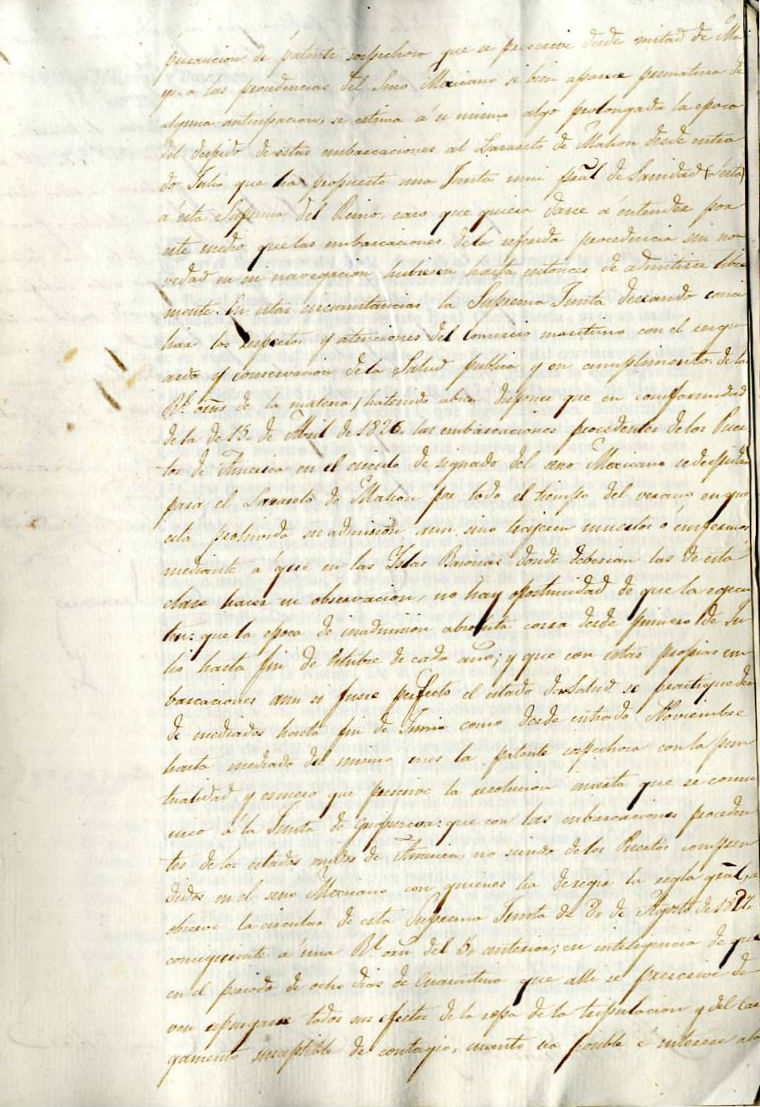 precaucion de patente sospechosa que se prescrive desde mitad de Ma
yo a las procedencias del Seno Mexicano si bien aparece prematura de
alguna anticipacion, se estima á si mismo algo prolongada la epoca
del despido de estas embarcaciones al Lazareto de Mahon desde entra
do Julio que ha propuesto una Junta mui pral de Sanidad
á esta Suprema del Reino, caso que quiera darse á entender por
este medio que las embarcaciones de la referida procedencia sin no
vedad en su navegacion hubiesen hasta entonces de admitirse libre
mente. En estas circunstancias la Suprema Junta deseando conci
liar los respetos y atenciones del comercio maritimo con el resgu
ardo y conservacion de la Salud publica y en cumplimiento de las
Rs. ores de la materia, ha tenido á bien disponer que en conformidad
de la de 15 de Abril de 1826 las embarcaciones procedentes de los Puer
tos de America en el circulo designado del seno Mexicano se despidan
para el Lazareto de Mahon por todo el tiempo del verano en que
está prohivida su admision, aun sino trageren muertos ó enfermos
mediante á que en las Yslas Bayonas donde deberian las de esta
clase hacer su observacion, no hay oportunidad de que la egecu
ten: que la epoca de inadmision absoluta corra desde primero de Ju
lio hasta fin de Octubre de cada año; y que con estas propias em
barcaciones aun si fuese perfecto el estado de Salud se practique des
de mediados hasta fin de Junio como desde entrado Noviembre
hasta mediado del mismo mes la patente sospechosa con la pun
tualidad y esmero que prescrive la resolucion inserta que se comu
nico á la Junta de Guipuzcoa: que con las embarcaciones proceden
tes de los estados unidos de America, no siendo de los Puertos compren
didos en el seno Mexicano con quienes ha de regir la regla gral, se
observe la circular de esta Suprema Junta de de Agosto de 1827
consiguiente á una Rl. orn del anterior; en inteligencia de que
en el periodo de ocho dias de Cuarentena que alli se prescrive de
ven espurgarse todos sus efectos de la ropa de la tripulacion y del car
gamento susceptible de contagio, cuanto sea posible é interese á la